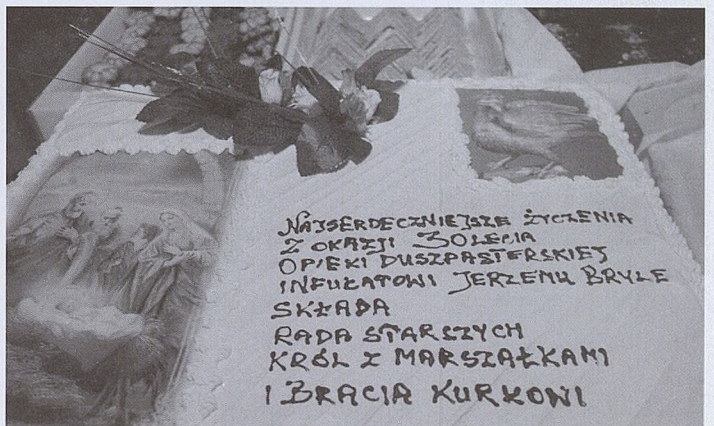 NAJSERDECZNIEJSZE ŻYCZENIA
Z OKAZJI 30LECIA
OPIEKI DUSZPASTERSKIEJ
INFUŁATOWI JERZEMU BRYLE
SKŁADA
RADA STARSZYCH
KRÓL Z MARSZAŁKAMI
I BRACIA KURKOWI